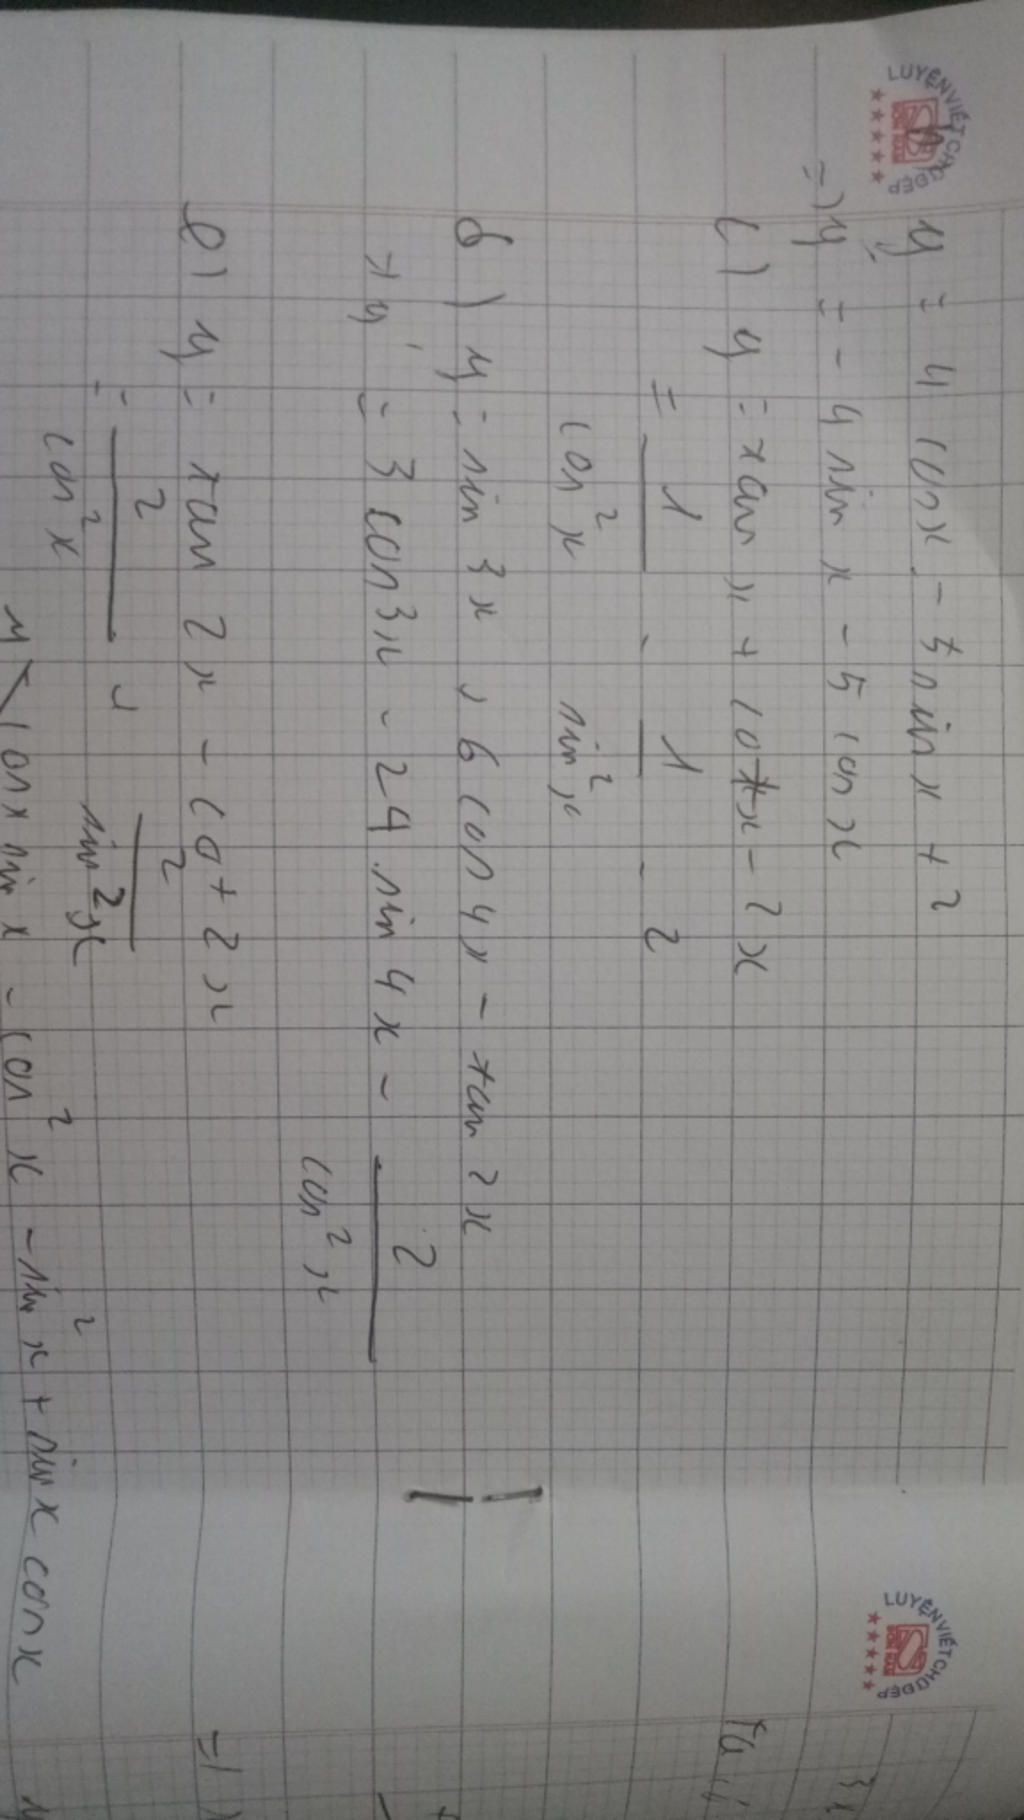 LUYỆN VIẾT CHỮ ĐẸP
y = 4 cos x - 5 sin x + 2
=) y' = - 4 sin x - 5 cos x
c) y = tan x + cot x - 2x
= 1 - 1 - 2
cos² x sin² x
d) y = sin 3x + 6 cos 4x - tan 2x
y' = 3 cos 3x - 24 sin 4x - 2
cos² x
e) y = tan 2x - cot 2x
= 2 2
cos² x sin² x
cos x sin x - cos² x - sin² x + sin x cos x
LUYỆN VIẾT CHỮ ĐẸP